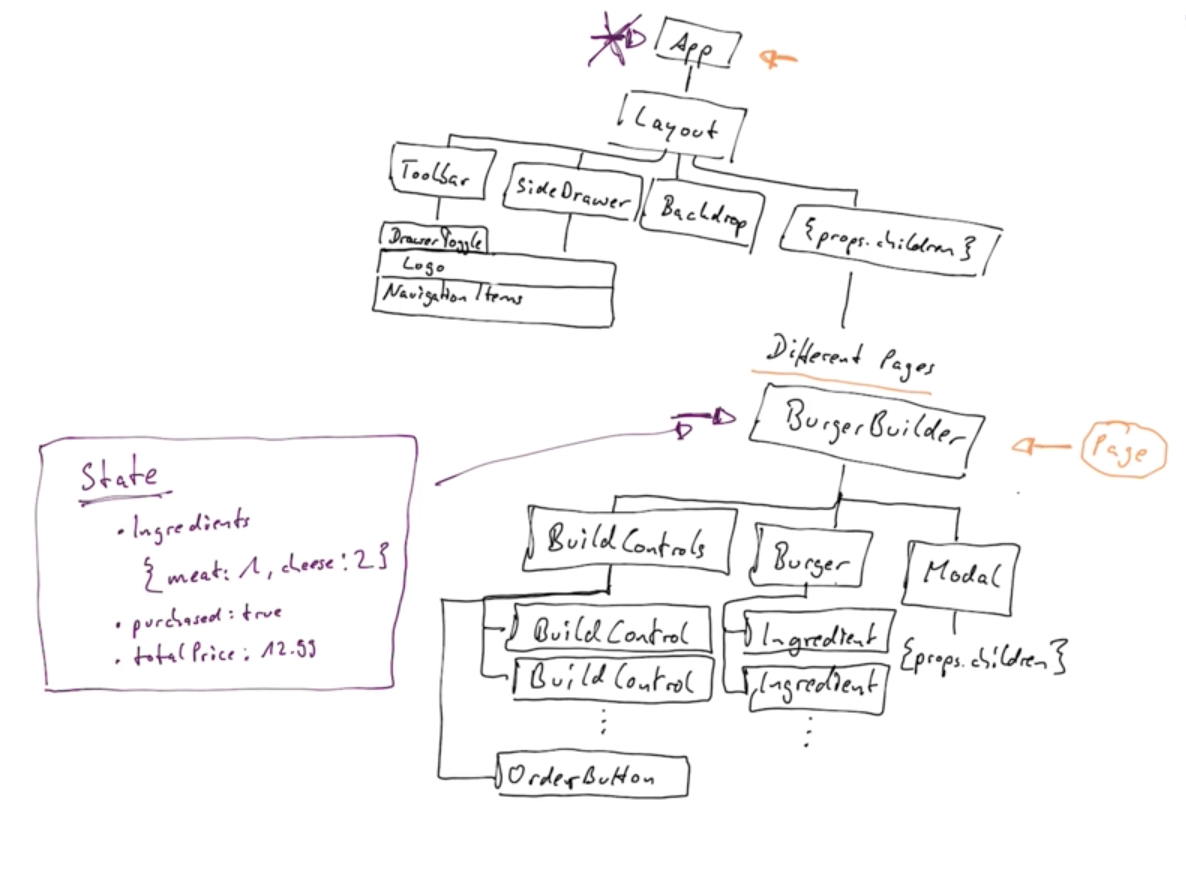 App
Layout
Toolbar
SideDrawer
Backdrop
{props.children}
DrawerToggle
Logo
Navigation Items
Different Pages
BurgerBuilder
Page
State
• Ingredients
{meat: 1, cheese: 2}
• purchased: true
• totalPrice: 12.99
BuildControls
Burger
Modal
BuildControl
Ingredient
{props.children}
BuildControl
Ingredient
OrderButton